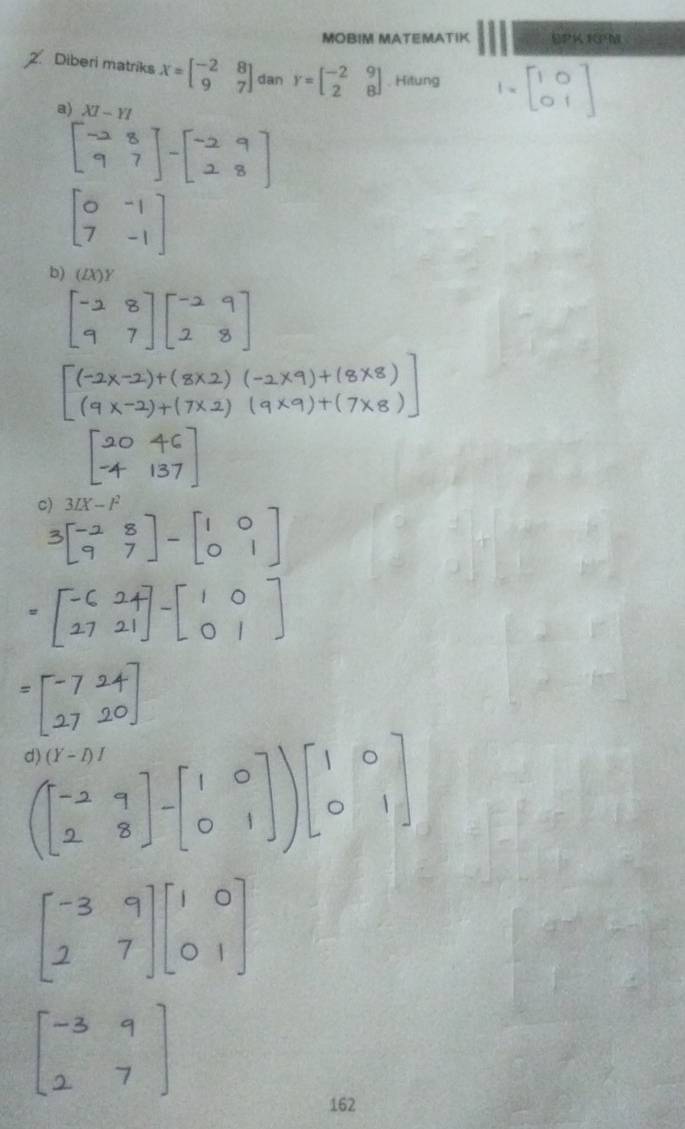 MOBIM MATEMATIK BPK KPM
2. Diberi matriks X = [-2 8; 9 7] dan Y = [-2 9; 2 8]. Hitung
I = [1 0; 0 1]
a) XI – YI
[-2 8; 9 7] - [-2 9; 2 8]
[0 -1; 7 -1]
b) (IX)Y
[-2 8; 9 7] [-2 9; 2 8]
[(-2×-2)+(8×2) (-2×9)+(8×8)
(9×-2)+(7×2) (9×9)+(7×8)]
[20 46; -4 137]
c) 3IX – I²
3[-2 8; 9 7] - [1 0; 0 1]
= [-6 24; 27 21] - [1 0; 0 1]
= [-7 24; 27 20]
d) (Y – I) I
([-2 9; 2 8] - [1 0; 0 1]) [1 0; 0 1]
[-3 9; 2 7] [1 0; 0 1]
[-3 9; 2 7]
162